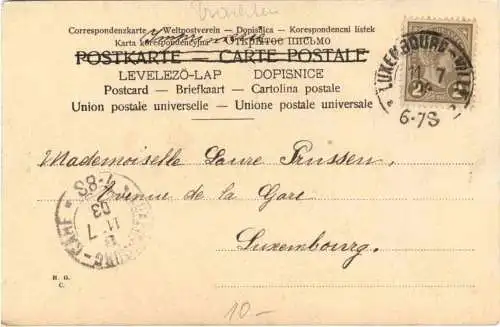 Correspondenzkarte – Weltpostverein – Dopisnica – Korespondencni listek
Karta korespondencyjna – ОТКРЫТОЕ ПИСЬМО
POSTKARTE – CARTE POSTALE
LEVELEZŐ-LAP DOPISNICE
Postcard – Briefkaart – Cartolina postale
Union postale universelle – Unione postale universale
LUXEMBOURG-VILLE
11 7
6-7S
2 2
Mademoiselle Laure Prussen,
Avenue de la Gare
Luxembourg.
LUXEMBOURG-GARE
7-8S
03
11 7
H. G.
C.
10-